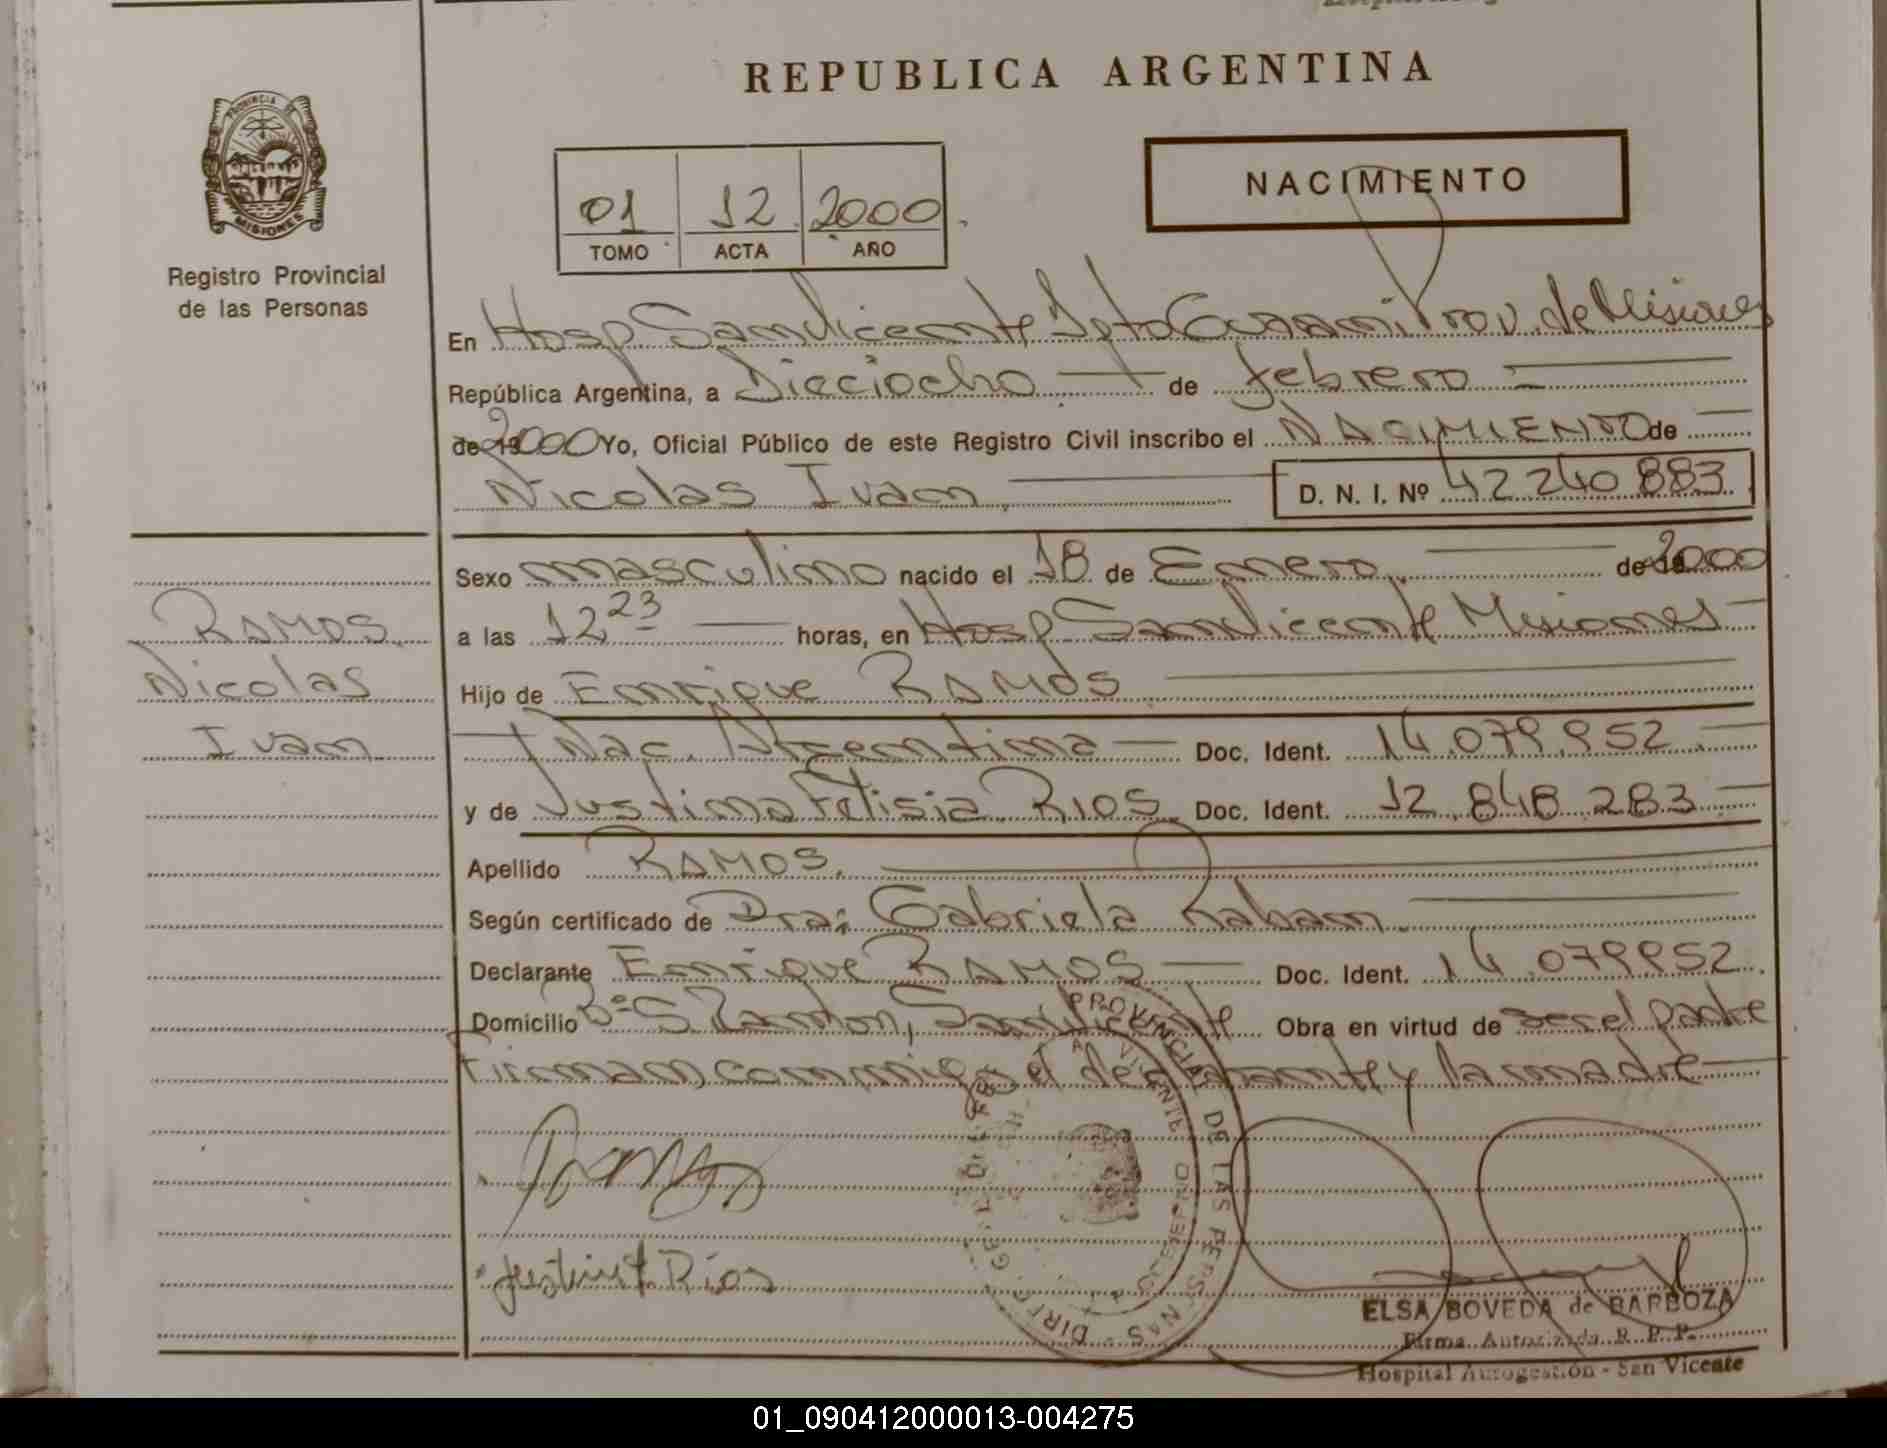 REPUBLICA ARGENTINA
PROVINCIA DE
MISIONES
Registro Provincial
de las Personas
01 12 2000
TOMO ACTA AÑO
NACIMIENTO
En Hosp San Vicente Dpto Guarani Prov. de Misiones
República Argentina, a Dieciocho de febrero
de 2000 Yo, Oficial Público de este Registro Civil inscribo el NACIMIENTO de
Nicolas Ivan D. N. I. Nº 42 240 883
Sexo masculino nacido el 18 de Enero de 2000
RAMOS
a las 12 23 horas, en Hosp San Vicente Misiones
Nicolas
Hijo de Enrique RAMOS
Ivan
Nac. Argentina Doc. Ident. 14.079.952
y de Justina Felisia RIOS Doc. Ident. 12.848.283
Apellido RAMOS.
Según certificado de Dra: Gabriela Raban
Declarante Enrique RAMOS Doc. Ident. 14.079952
Domicilio Bº S. Ramon, San Vicente Obra en virtud de ser el padre
Firman conmigo el declarante y la madre
PROVINCIAL DE LAS PERSONAS
Ramos
Justina F. Rios
ELSA BOVEDA de BARBOZA
Firma Autorizada R. P. P.
Hospital Autogestión - San Vicente
01_090412000013-004275